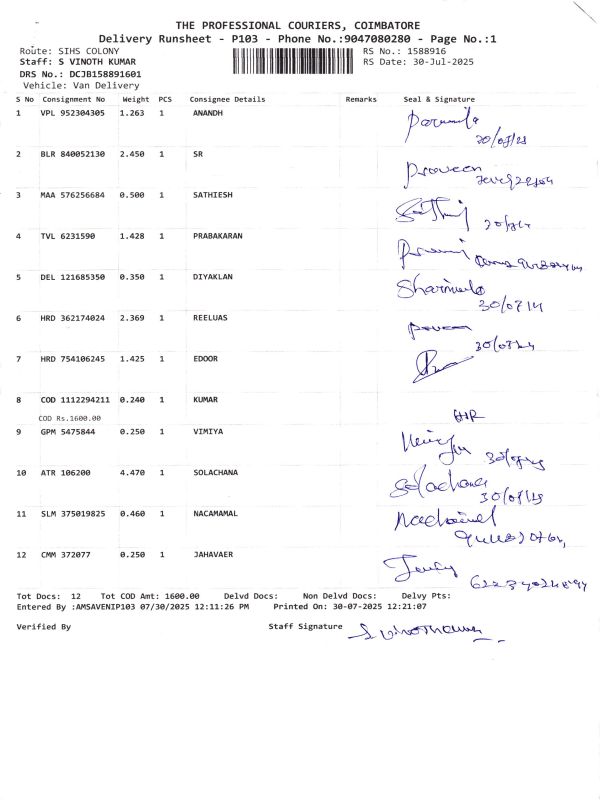 THE PROFESSIONAL COURIERS, COIMBATORE
Delivery Runsheet - P103 - Phone No.:9047080280 - Page No.:1
Route: SIHS COLONY RS No.: 1588916
Staff: S VINOTH KUMAR RS Date: 30-Jul-2025
DRS No.: DCJB158891601
Vehicle: Van Delivery
S No Consignment No Weight PCS Consignee Details Remarks Seal & Signature
1 VPL 952304305 1.263 1 ANANDH
2 BLR 840052130 2.450 1 SR Praveen
3 MAA 576256684 0.500 1 SATHIESH
4 TVL 6231590 1.428 1 PRABAKARAN
5 DEL 121685350 0.350 1 DIYAKLAN Sharmila
30/07/
6 HRD 362174024 2.369 1 REELUAS
30/07/
7 HRD 754106245 1.425 1 EDOOR
8 COD 1112294211 0.240 1 KUMAR
COD Rs.1600.00
9 GPM 5475844 0.250 1 VIMIYA
10 ATR 106200 4.470 1 SOLACHANA Solachana
30/07/25
11 SLM 375019825 0.460 1 NACAMAMAL
12 CMM 372077 0.250 1 JAHAVAER
Tot Docs: 12 Tot COD Amt: 1600.00 Delvd Docs: Non Delvd Docs: Delvy Pts:
Entered By :AMSAVENIP103 07/30/2025 12:11:26 PM Printed On: 30-07-2025 12:21:07
Verified By Staff Signature S Vinothkumar